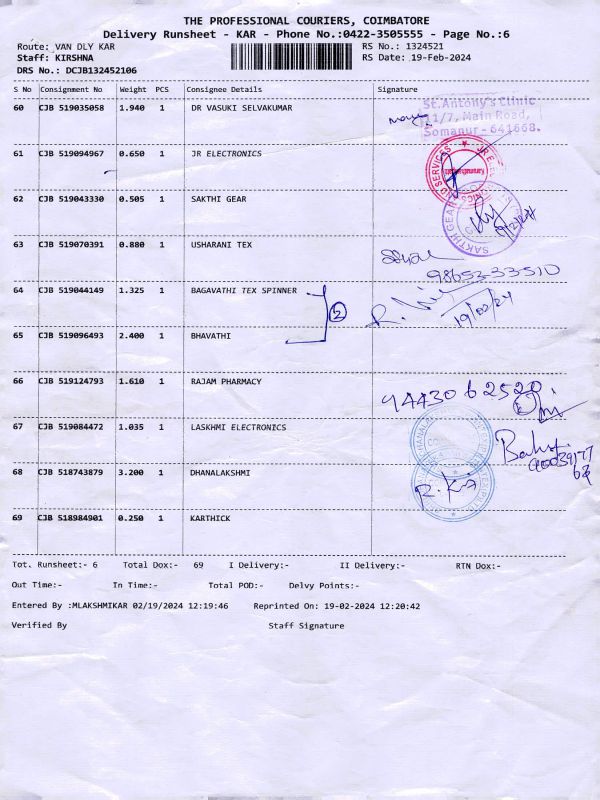 THE PROFESSIONAL COURIERS, COIMBATORE
Delivery Runsheet - KAR - Phone No.:0422-3505555 - Page No.:6
Route: VAN DLY KAR RS No.: 1324521
Staff: KIRSHNA RS Date: 19-Feb-2024
DRS No.: DCJB132452106
S No Consignment No Weight PCS Consignee Details Signature
60 CJB 519035058 1.940 1 DR VASUKI SELVAKUMAR
St.Antony's Clinic
1/7, Main Road,
Somanur - 641668.
61 CJB 519094967 0.650 1 JR ELECTRONICS
62 CJB 519043330 0.505 1 SAKTHI GEAR
SAKTHI GEAR
63 CJB 519070391 0.880 1 USHARANI TEX
98653-33510
64 CJB 519044149 1.325 1 BAGAVATHI TEX SPINNER
2
19/02/24
65 CJB 519096493 2.400 1 BHAVATHI
66 CJB 519124793 1.610 1 RAJAM PHARMACY
94430 62520
67 CJB 519084472 1.035 1 LASKHMI ELECTRONICS
68 CJB 518743879 3.200 1 DHANALAKSHMI
69 CJB 518984901 0.250 1 KARTHICK
Tot. Runsheet:- 6 Total Dox:- 69 I Delivery:- II Delivery:- RTN Dox:-
Out Time:- In Time:- Total POD:- Delvy Points:-
Entered By :MLAKSHMIKAR 02/19/2024 12:19:46 Reprinted On: 19-02-2024 12:20:42
Verified By Staff Signature